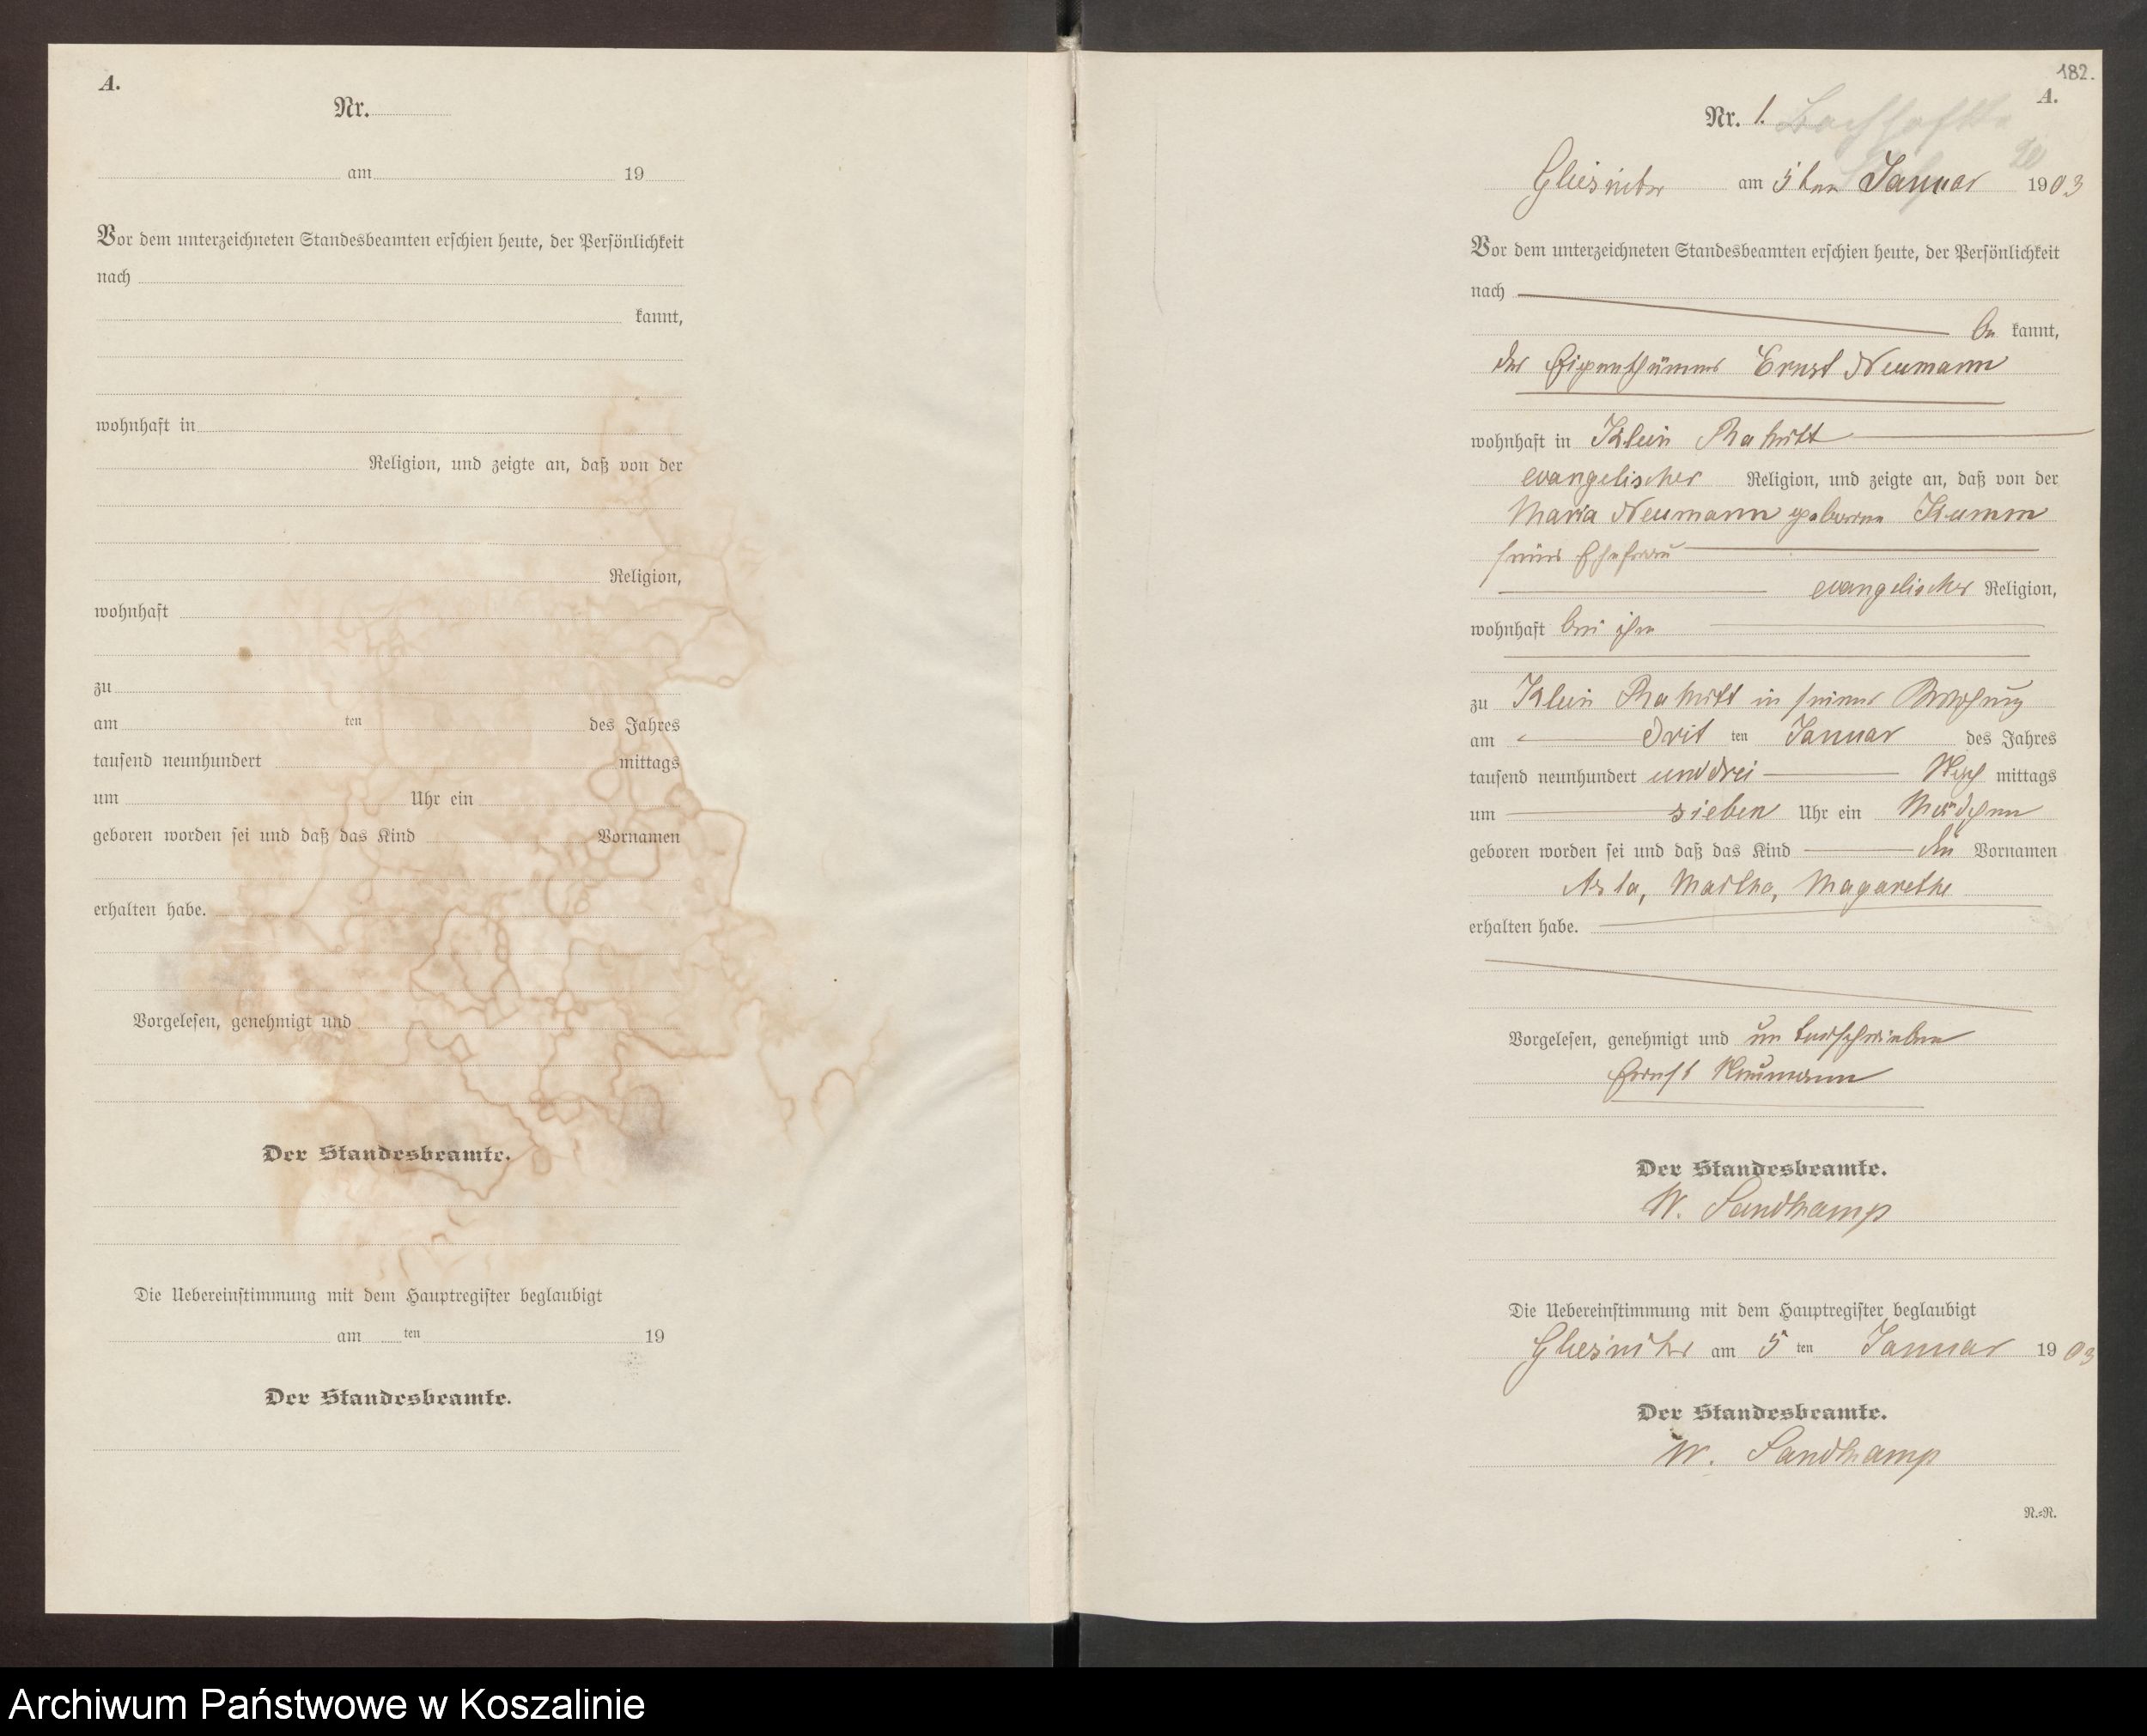 A.
Nr.
am 19
Vor dem unterzeichneten Standesbeamten erschien heute, der Persönlichkeit
nach
kannt,
wohnhaft in
Religion, und zeigte an, daß von der
Religion,
wohnhaft
zu
am ten des Jahres
tausend neunhundert mittags
um Uhr ein
geboren worden sei und daß das Kind Vornamen
erhalten habe.
Vorgelesen, genehmigt und
Der Standesbeamte.
Die Uebereinstimmung mit dem Hauptregister beglaubigt
am ten 19
Der Standesbeamte.
182.
A.
Nr. 1.
am 5ten Januar 1903
Vor dem unterzeichneten Standesbeamten erschien heute, der Persönlichkeit
nach
be kannt,
der Eigenthümer Ernst Neumann
wohnhaft in Klein
evangelischer Religion, und zeigte an, daß von der
Maria Neumann geborene Kumm
seiner Ehefrau
evangelischer Religion,
wohnhaft bei ihm
zu Klein in seiner Wohnung
am drit ten Januar des Jahres
tausend neunhundert und drei Nach mittags
um sieben Uhr ein Mädchen
geboren worden sei und daß das Kind die Vornamen
Asta, Martha, Magarethe
erhalten habe.
Vorgelesen, genehmigt und unterschrieben
Ernst Neumann
Der Standesbeamte.
W. Sandkamp
Die Uebereinstimmung mit dem Hauptregister beglaubigt
am 5 ten Januar 1903
Der Standesbeamte.
W. Sandkamp
N.=N.
Archiwum Państwowe w Koszalinie